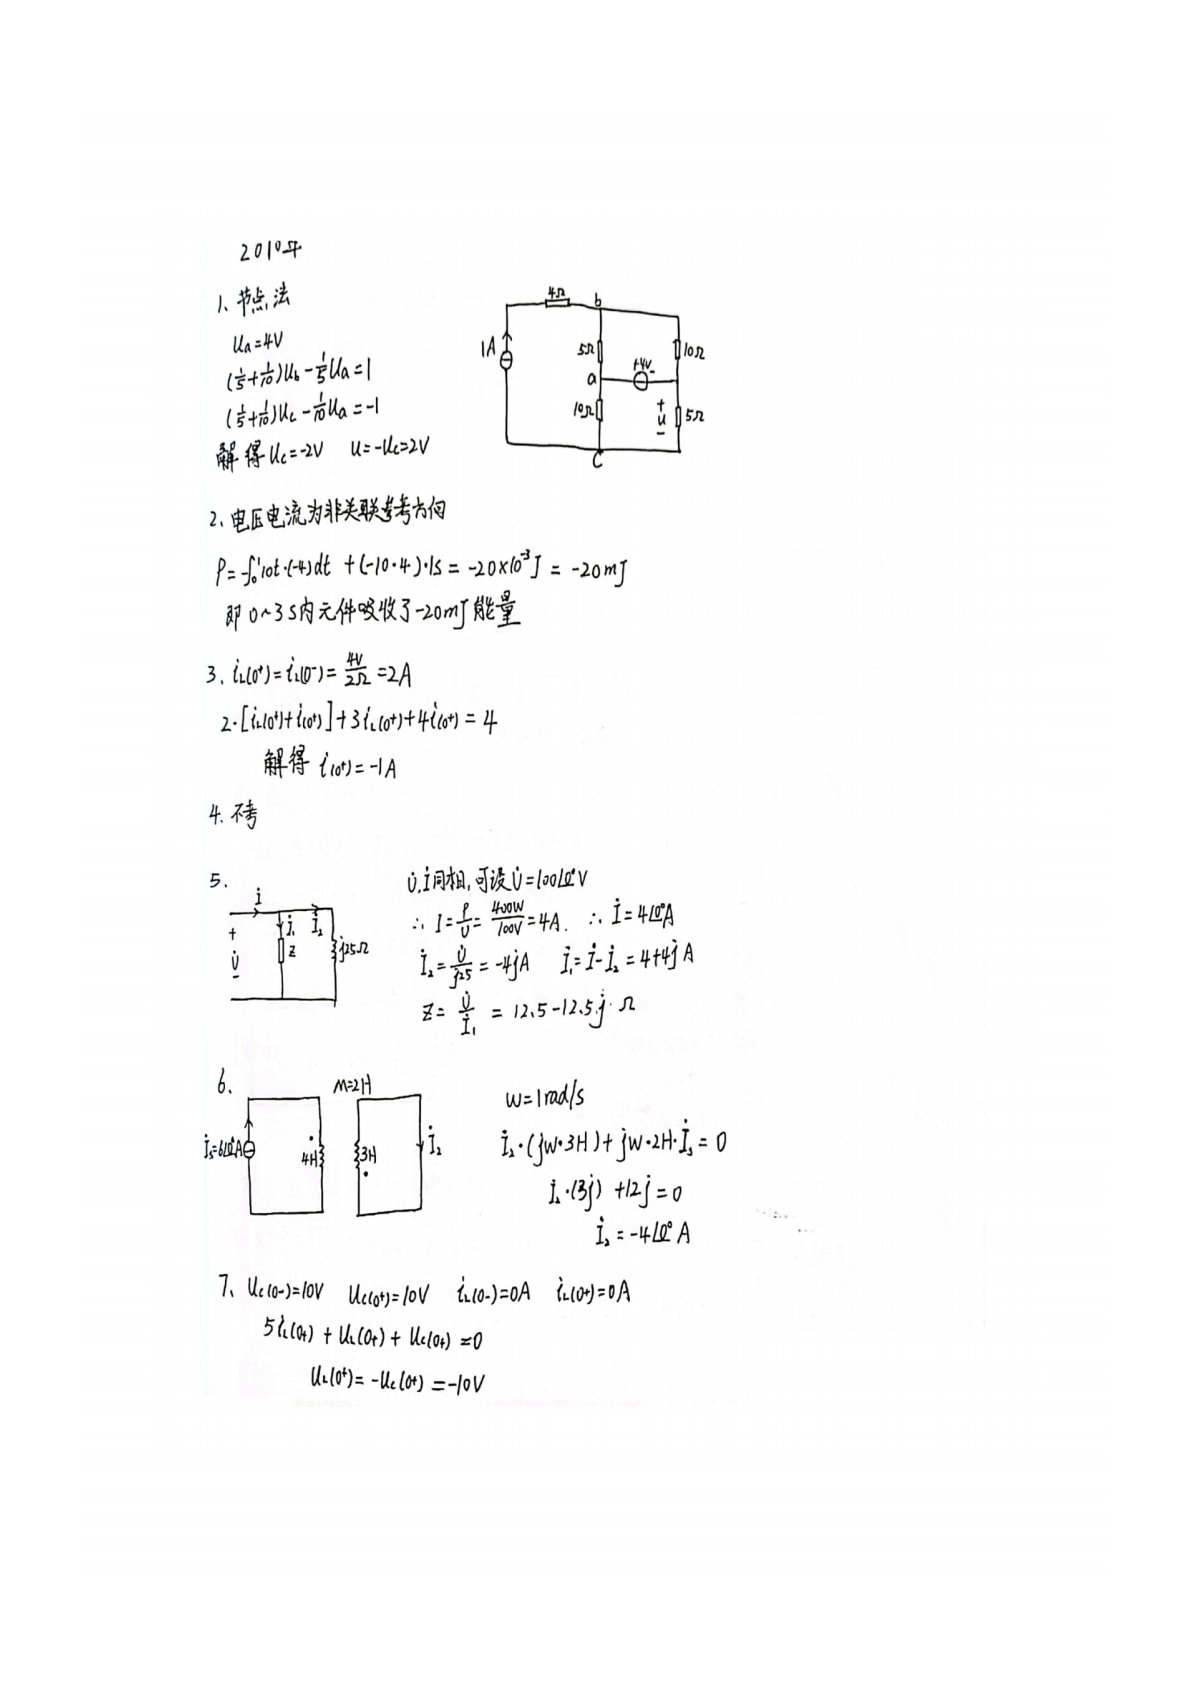 2010年
1、节点法
Ua=4V
(1/5+1/10)Ub-1/5Ua=1
(1/5+1/10)Uc-1/10Ua=-1
解得Uc=-2V U=-Uc=2V
4Ω
b
1A
5Ω
10Ω
a
+4V-
10Ω
+
u
-
5Ω
C
2、电压电流为非关联参考方向
P=-∫₀¹10t·(-4)dt+(-10·4)·1s=-20×10⁻³J=-20mJ
即0~3S内元件吸收了-20mJ能量
3、iL(0⁺)=iL(0⁻)=4V/2Ω=2A
2·[iL(0⁺)+i(0⁺)]+3iL(0⁺)+4i(0⁺)=4
解得i(0⁺)=-1A
4、不考
5.
İ
İ₁
İ₂
+
U̇
-
Z
j25Ω
U̇,İ同相,可设U̇=100∠0°V
∴I=P/U=400W/100V=4A. ∴İ=4∠0°A
İ₂=U̇/j25=-4jA İ₁=İ-İ₂=4+4jA
Z=U̇/İ₁=12.5-12.5j·Ω
6、
M=2H
İs=6∠0°A
4H
3H
İ₂
W=1rad/s
İ₂·(jw·3H)+jw·2H·İs=0
İ₂·(3j)+12j=0
İ₂=-4∠0°A
7、Uc(0-)=10V Uc(0⁺)=10V iL(0-)=0A iL(0+)=0A
5iL(0+)+UL(0+)+Uc(0+)=0
UL(0⁺)=-Uc(0⁺)=-10V